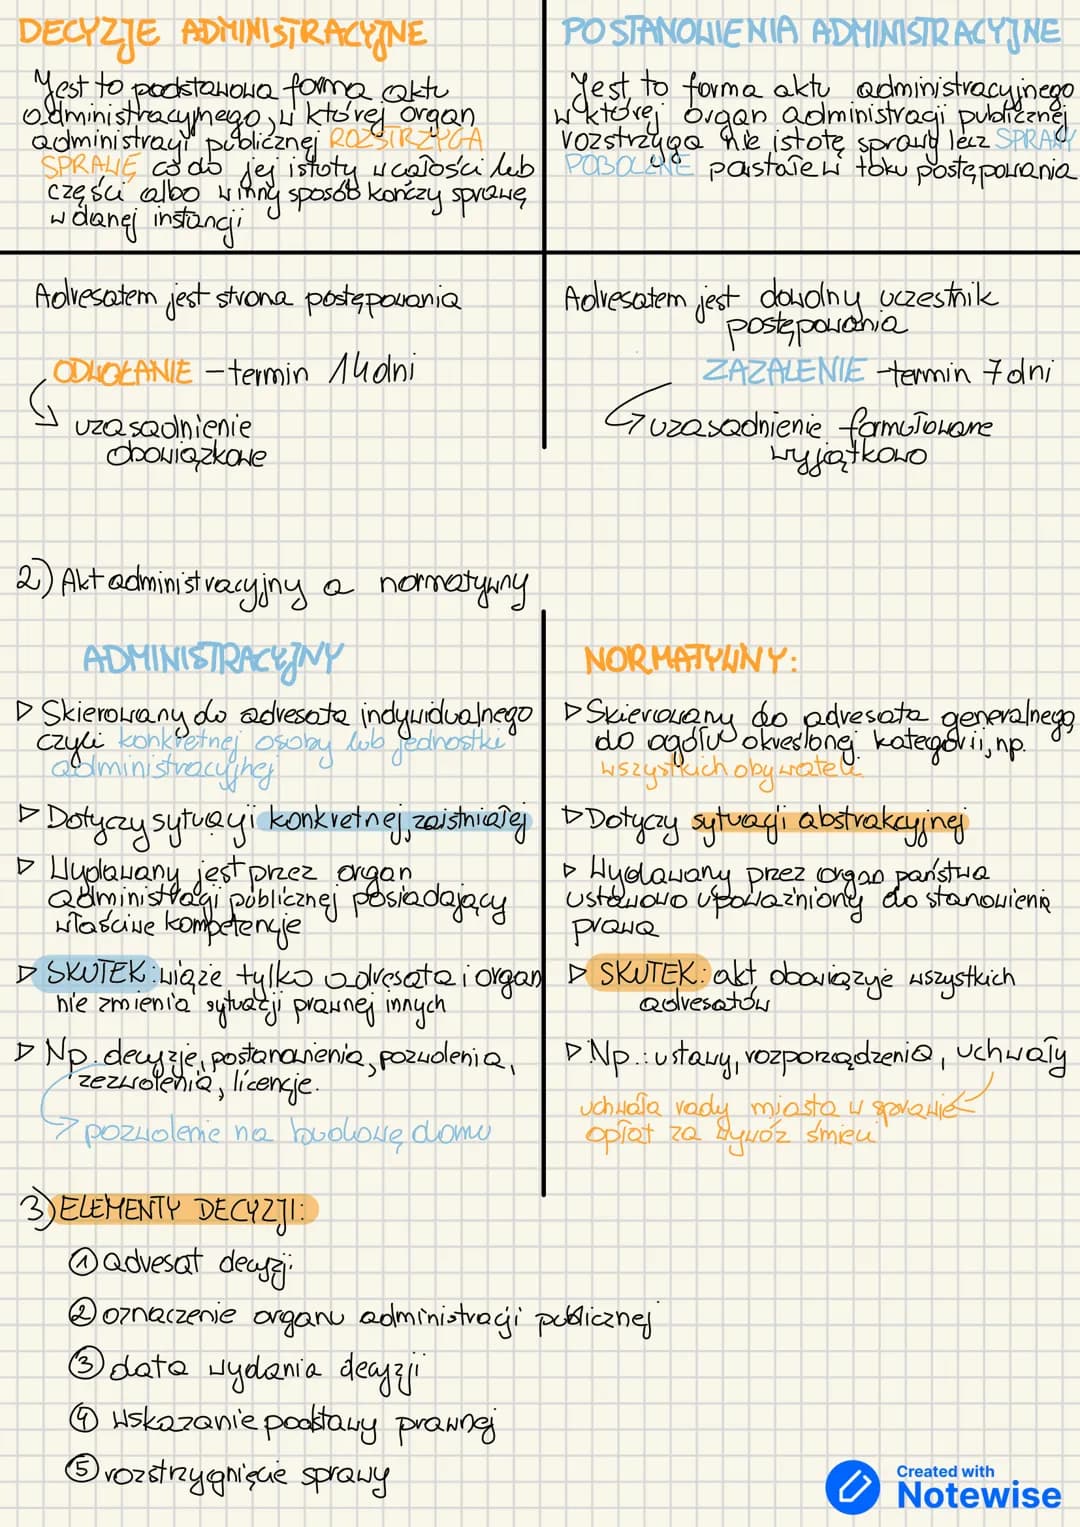 DECYZJE ADMINISTRACYJNE
Jest to podstawowa forma aktu
administracyjnego, w której organ
administracji publicznej ROZSTRZYGA
SPRAWĘ co do jej istoty w całości lub
części albo w inny sposób kończy sprawę
w danej instancji
POSTANOWIENIA ADMINISTRACYJNE
Jest to forma aktu administracyjnego
w której organ administracji publicznej
rozstrzyga nie istotę sprawy lecz SPRAWY
POBOCZNE powstałe w toku postępowania
Adresatem jest strona postępowania
ODWOŁANIE – termin 14 dni
uzasadnienie
obowiązkowe
Adresatem jest dowolny uczestnik
postępowania
ZAŻALENIE – termin 7 dni
uzasadnienie formułowane
wyjątkowo
2) Akt administracyjny a normatywny
ADMINISTRACYJNY
▷ Skierowany do adresata indywidualnego
czyli konkretnej osoby lub jednostki
administracyjnej
▷ Dotyczy sytuacji konkretnej, zaistniałej
▷ Wydawany jest przez organ
administracji publicznej posiadający
właściwe kompetencje
▷ SKUTEK: wiąże tylko adresata i organ
nie zmienia sytuacji prawnej innych
▷ Np. decyzje, postanowienia, pozwolenia,
zezwolenia, licencje.
pozwolenie na budowę domu
NORMATYWNY:
▷ Skierowany do adresata generalnego,
do ogółu określonej kategorii, np.
wszystkich obywateli
▷ Dotyczy sytuacji abstrakcyjnej
▷ Wydawany przez organ państwa
ustawowo upoważniony do stanowienia
prawa
▷ SKUTEK: akt obowiązuje wszystkich
adresatów
▷ Np.: ustawy, rozporządzenia, uchwały
uchwała rady miasta w sprawie
opłat za wywóz śmieci
3) ELEMENTY DECYZJI:
① adresat decyzji
② oznaczenie organu administracji publicznej
③ data wydania decyzji
④ wskazanie podstawy prawnej
⑤ rozstrzygnięcie sprawy
Created with
Notewise